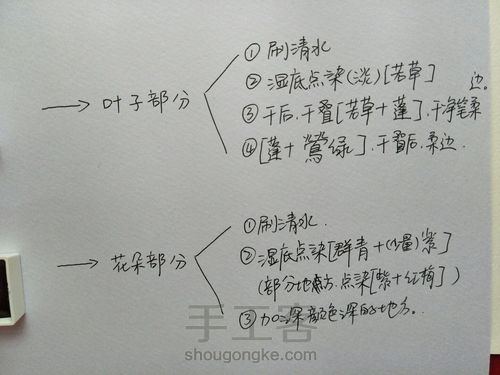 ① 刷清水
② 湿底点染(淡)[若草]
→ 叶子部分
③ 干后,干叠[若草+蓬],干净笔柔边。
④ [蓬+鶯绿],干叠后,柔边.
① 刷清水.
② 湿底点染[群青+(少量)紫]
→ 花朵部分
(部分地方.点染[紫+红梅])
③ 加深颜色深的地方。
手工客
shougongke.com